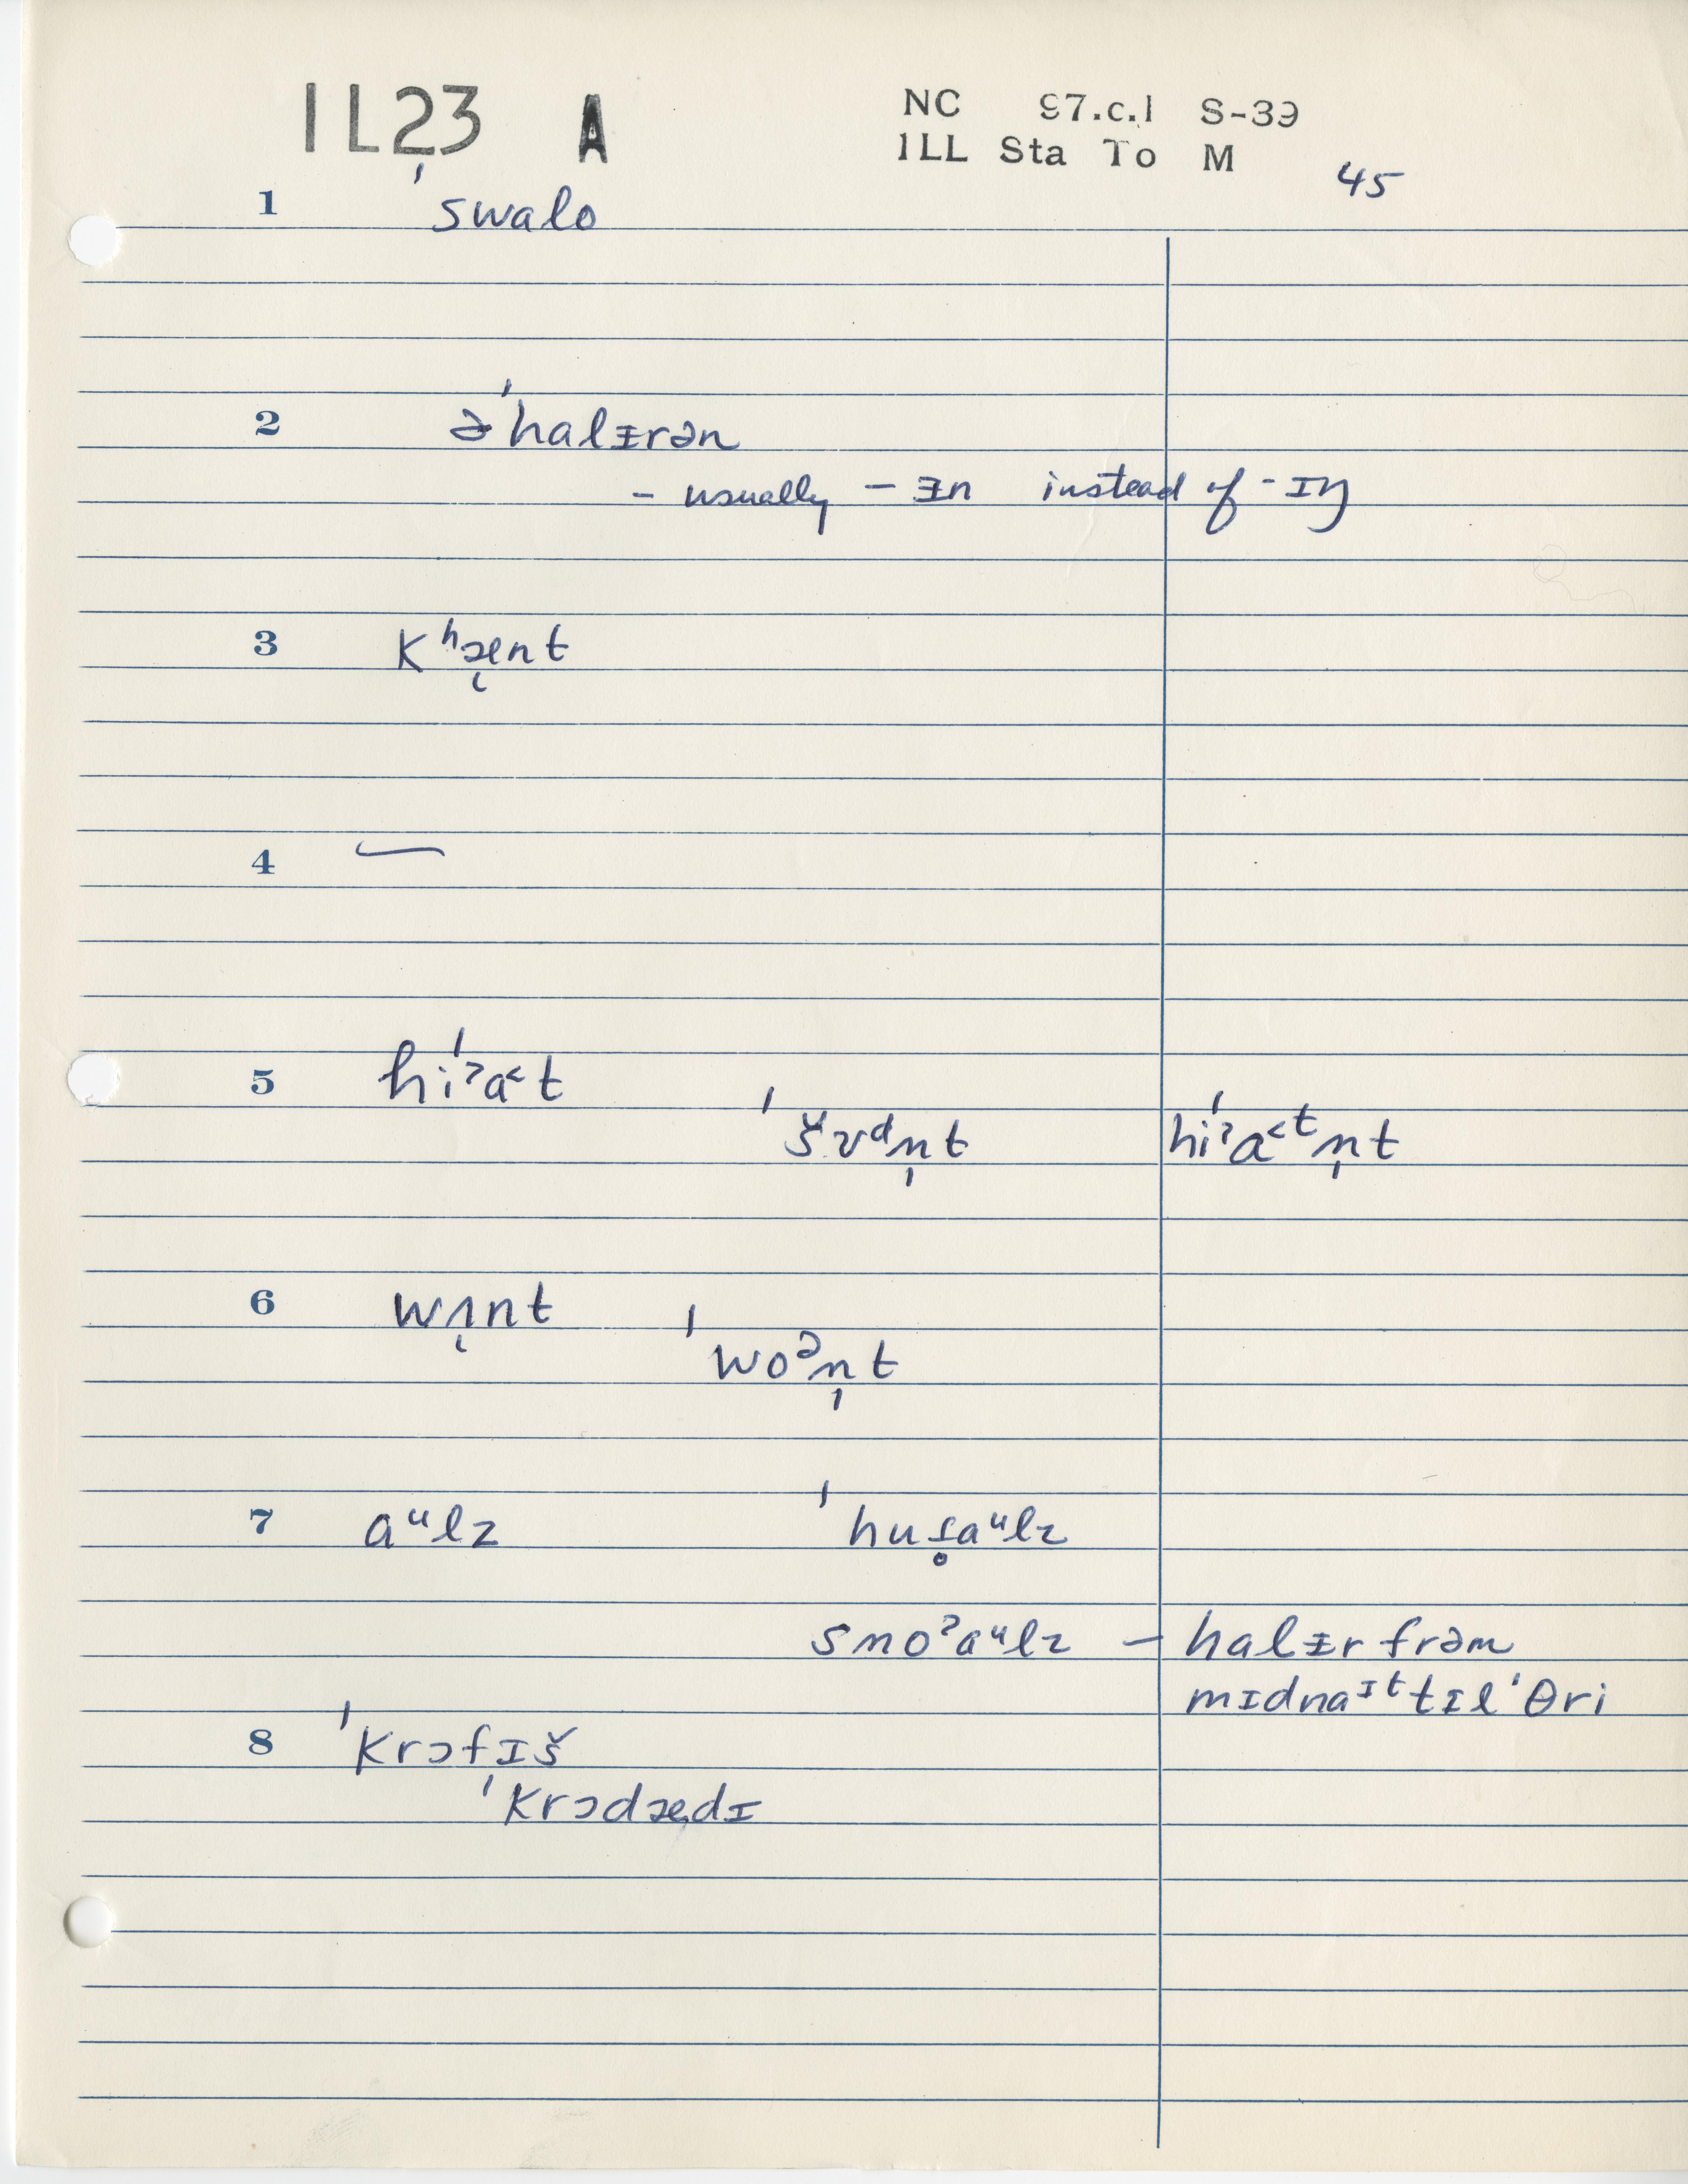 1L23 A NC 97.c.1 S-39
1LL Sta To M
45
1 ˈswalo
2 əˈhalɪ̵rən
- usually – ɪ̵n instead of -ɪŋ
3 kʰæ̨nt
4 —
5 hiˈˀa˂t
ˈšʊᵈn̩t hiˈˀa˂ᵗn̩t
6 wʌ̨nt
ˈwoᵊn̩t
7 aᵘlz ˈhut̬̥aᵘlz
snoˀaᵘlz – halɪ̵r frəm
mɪdnaᶦᵗ tɪl ˈθri
8 ˈkrɔfɪš
ˈkrɔdædɪ